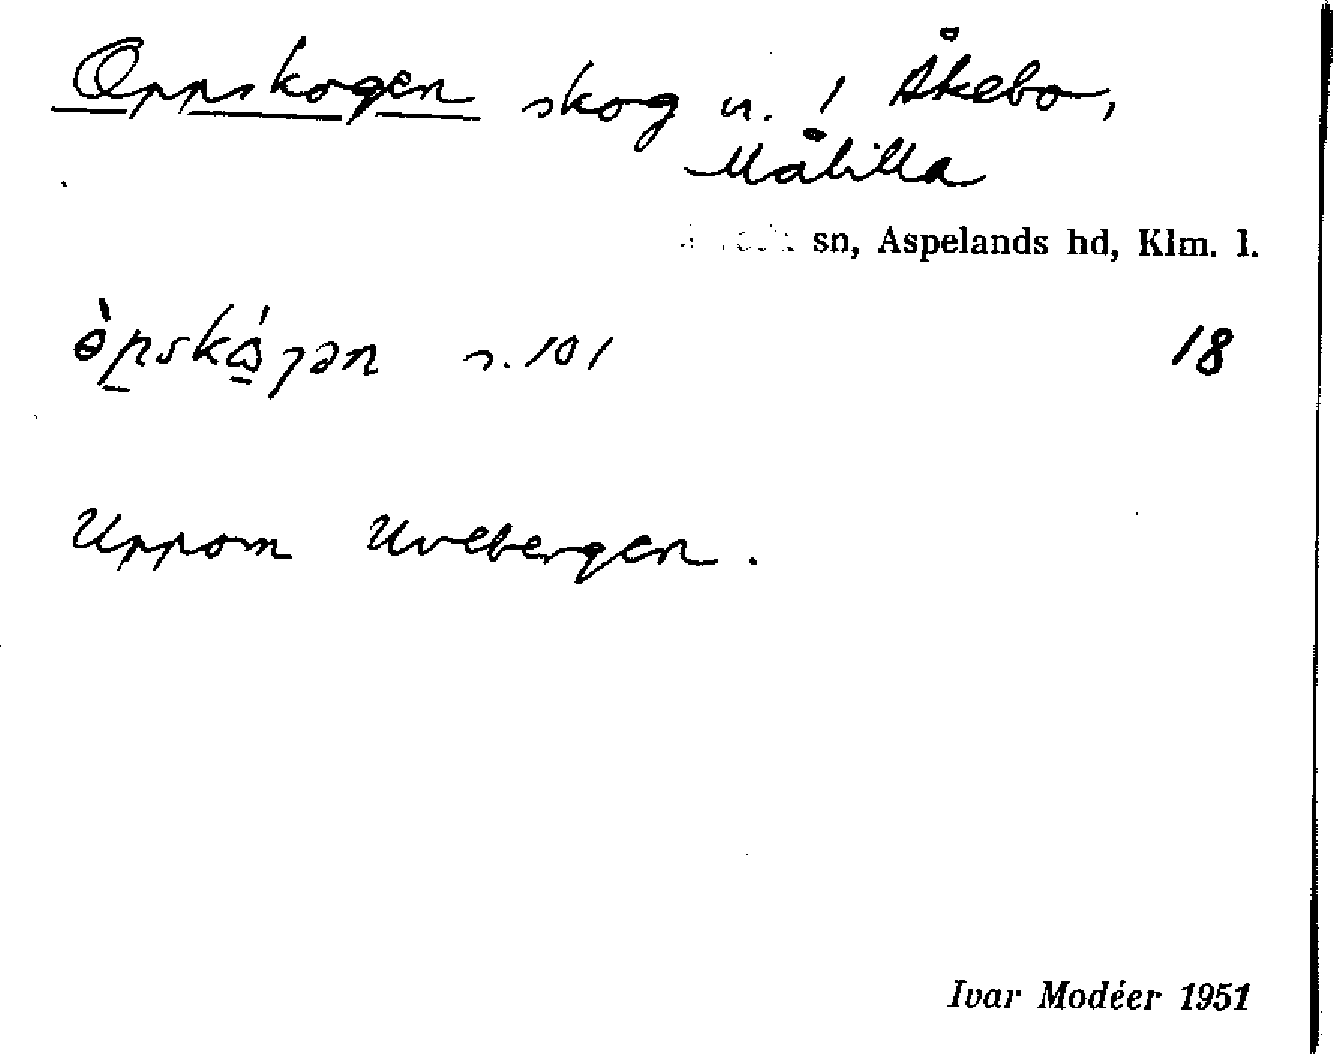 Oppskogen skog u. / Åkebo,
Målilla
sn, Aspelands hd, Klm. l.
s. 101 18
Uppom Uvebergen.
Ivar Modéer 1951